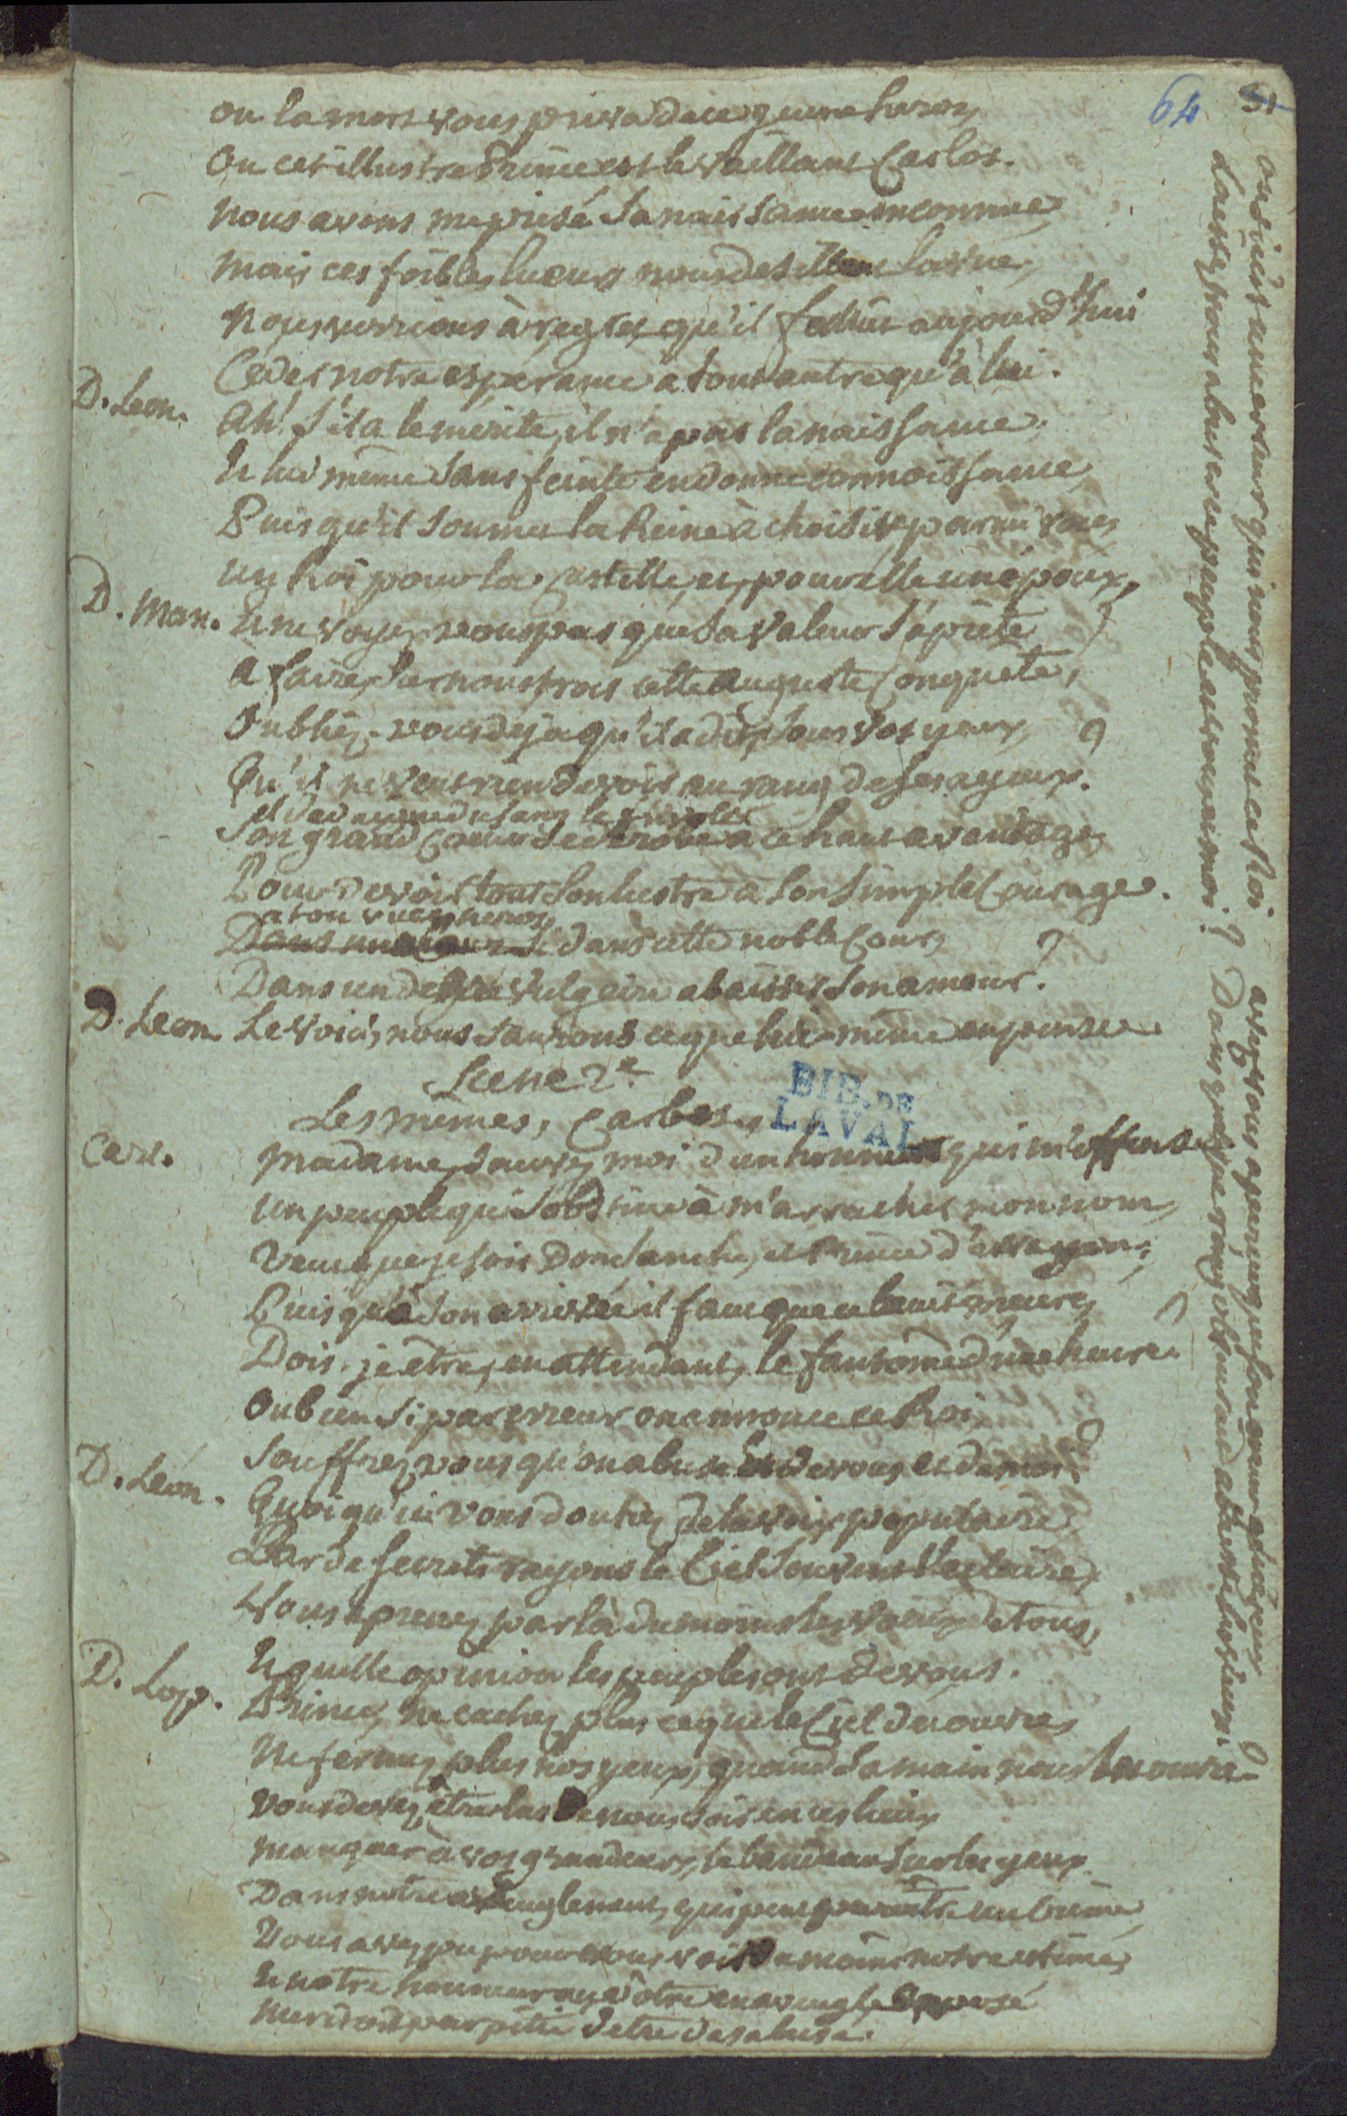 64
ou la mort vous priva de ce jeune heros,
Ou cet illustre Prince est le vaillant Carlos.
Nous avons meprisé sa naissance inconnue,
Mais ces foibles lueurs nous desillent la vue,
Nous verrions à regret qu'il fallût aujourd'hui
Ceder notre esperance à tout autre qu'à lui.
D. Leon. Ah! S'il a le mérite, il n'a pas la naissance.
Et lui même sans feinte en donne connoissance,
Puisqu'il soumet la Reine à choisir parmi vous
Un Roi pour la Castille, et pour elle un époux,
D. Man. Et ne voyez vous pas que sa valeur s'aprête
A faire sur nous trois cette auguste Conquête,
Oubliez-vous déja qu'il a dit sous vos yeux,
Qu'il ne veut rien devoir au rang de ses ayeux?
Il dedaigne du sang le frivole
Son grand Coeur se derobe à ce haut avantage,
Pour devoir tout son lustre à son simple Courage.
a t'on vu ce heros
Dans une Cour dans cette noble Cour,
Dans un degré vulgaire abaisser son amour?
D. Leon. Le voici, nous saurons ce que lui même en pense.
Scene 2e
Les mêmes, Carlos.
BIB. DE
LAVAL
Carl. Madame, sauvez moi d'un honneur qui m'offense
Un peuple qui s'obstine à m'arracher mon nom,
Veut que je sois Don Sanche, et Prince d'Arragon;
Puisqu'à son arrivée il faut que ce bruit meure,
Dois-je être, en attendant, le fantome d'une heure?
Ou bien si par erreur on annonce ce Roi
Souffrez vous qu'on abuse et de vous et de moi?
D. Léon. Quoiqu'ici vous doutiez de la voix populaire
Par de secrets rayons le Ciel souvent l'eclaire,
Vous aprenez par là du moins les voeux de tous,
Et quelle opinion les peuples ont de vous.
D. Lop. Prince, ne cachez plus ce que le Ciel decouvre,
Ne fermez plus nos yeux, quand sa main nous les ouvre
Vous devez être las de nous voir en ces lieux
Manquer à vos grandeurs, le bandeau sur les yeux
Dans notre aveuglement, qui peut paroitre un crime,
Vous avez pu pour vous voir du moins notre estime,
Et notre honneur
Merite par pitié d'etre desabusé.
qui nous promet ce Roi
Laissez vous abuser ce peuple
avez vous aperçu que son coeur
Dans quelque rang obscur